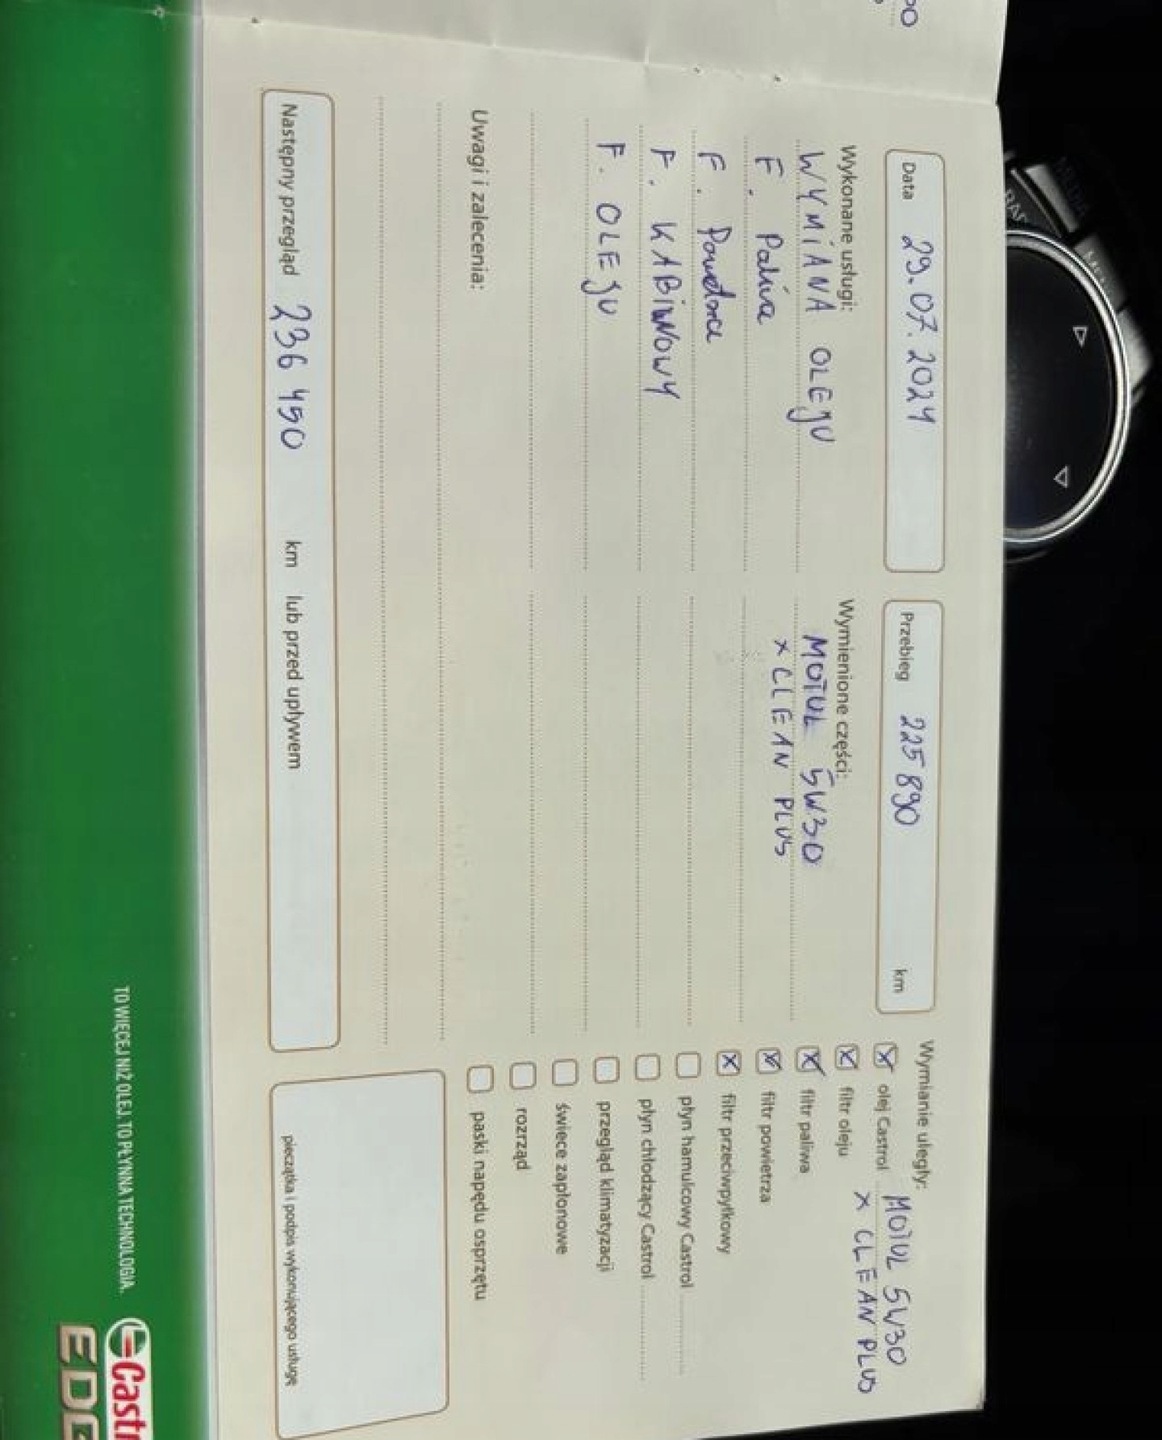 Data 29.07.2024
Przebieg 225 890 km
Wykonane usługi:
WYMIANA OLEJU
F. Paliwa
F. Powietrza
F. KABINOWY
F. OLEJU
Wymienione części:
MOTUL 5W30
X CLEAN PLUS
Wymianie uległy:
olej Castrol MOTUL 5W30
X CLEAN PLUS
filtr oleju
filtr paliwa
filtr powietrza
filtr przeciwpyłkowy
płyn hamulcowy Castrol
płyn chłodzący Castrol
przegląd klimatyzacji
świece zapłonowe
rozrząd
paski napędu osprzętu
Uwagi i zalecenia:
Następny przegląd 236 450 km lub przed upływem
pieczątka i podpis wykonującego usługę
TO WIĘCEJ NIŻ OLEJ. TO PŁYNNA TECHNOLOGIA.
Castr
EDG